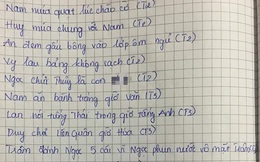 Nam múa quạt lúc chào cờ (T2)
Huy múa chung với Nam (T2)
An đem gấu bông vào lớp ôm ngủ (T2)
Vy lau bảng không sạch (T2)
Ngọc chửi Thuỷ là con (T2)
Nam ăn bánh tráng giờ văn (T3)
Lan nói tiếng Thái trong giờ tiếng Anh (T3)
Duy chơi Liên Quân giờ Hóa (T3)
Trâm đánh Ngọc 5 cái vì Ngọc phun nước vô mặt Trâm